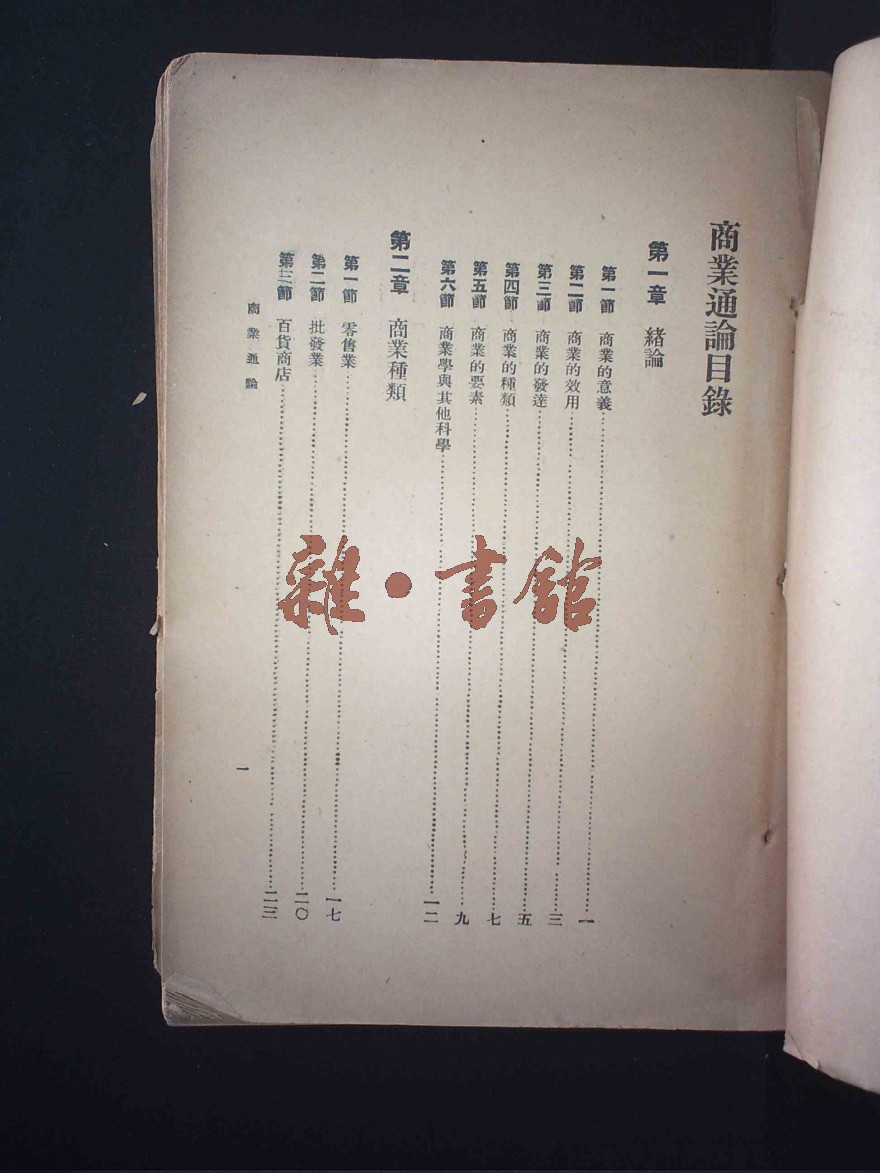 商業通論目錄
第一章 緒論
第一節 商業的意義 一
第二節 商業的效用 三
第三節 商業的發達 五
第四節 商業的種類 七
第五節 商業的要素 九
第六節 商業學與其他科學 一二
第二章 商業種類
第一節 零售業 一七
第二節 批發業 二〇
第三節 百貨商店 二三
商業通論
一
雜·書館